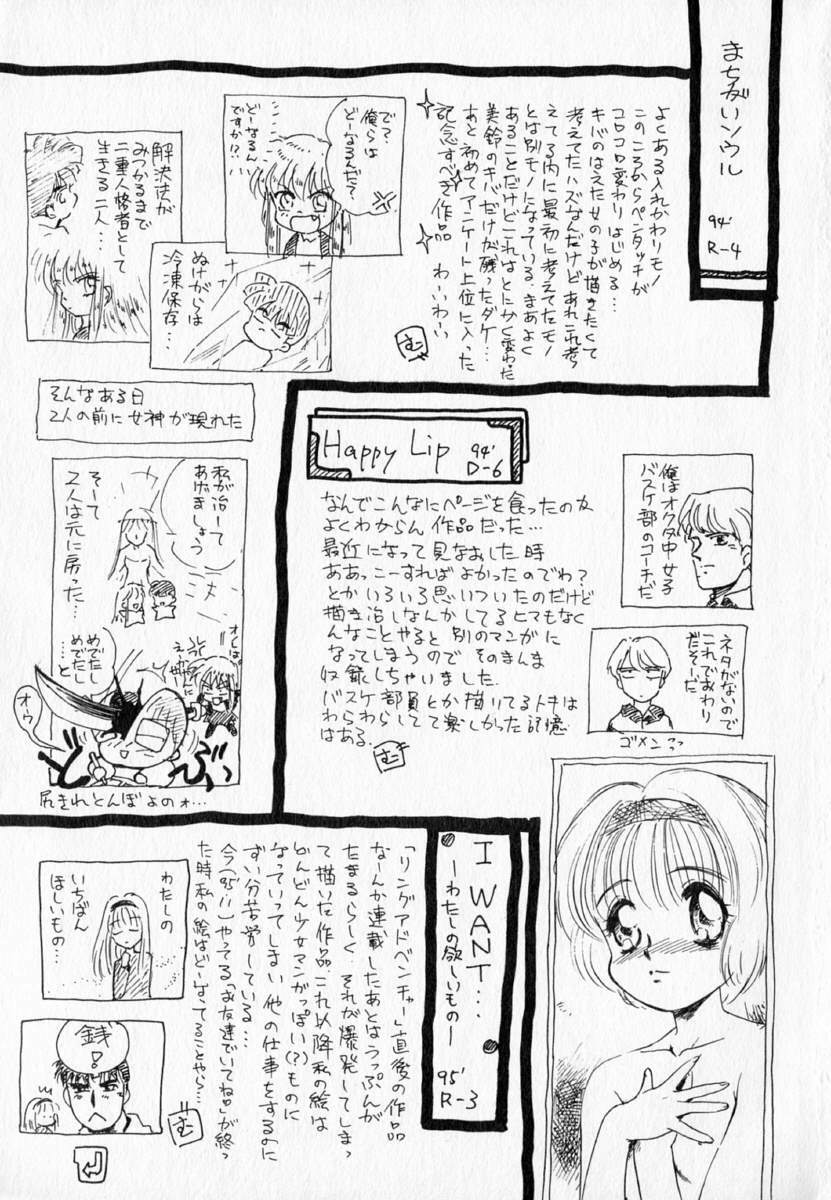 まちがいソウル
94'
R-4
よくある入れかわりモノ
このころからペンタッチが
コロコロ変わりはじめる…
キバのはえた女の子が描きたくて
考えてたハズなんだけどあれこれ考
えてる内に最初に考えてたモノ
とは別モノになっている、まあよく
あることだけどこれはとにかく変わった
美鈴のキバだけが残ったダケ…
あと初めてアンケート上位に入った
記念すべき作品 わーいわーい
む
で?
俺らは
どーなるんだ?
どーなるん
ですか!?
ぬけがらは
冷凍保存…
解決法が
みつかるまで
二重人格者として
生きる二人…
そんなある日
2人の前に女神が現れた
私が治して
あげましょう
そーして
2人は元に戻った…
めでたし
めでたし
…と
オウ
尻きれとんぼよのォ…
Happy Lip
94'
D-6
なんでこんなにページを食ったのか
よくわからん作品だった…
最近になって見なおした時
ああっこーすればよかったのでわ?
とかいろいろ思いついたのだけど
描き治しなんかしてるヒマもなく
んなことやると別のマンガに
なってしまうのでそのまんま
収録しちゃいました.
バスケ部員とか描いてるトキは
わらわらしてて楽しかった記憶
はある.
む
俺はオクダ中女子
バスケ部のコーチだ
ネタがないので
これでおわり
だそーだ
ゴメンっっ
I WANT…
―わたしの欲しいもの―
95'
R-3
「リングアドベンチャー」直後の作品
なーんか連載したあとはうっぷんが
たまるらしく、それが爆発してしまっ
て描いた作品.これ以降私の絵は
どんどん少女マンガっぽい(?)ものに
なっていってしまい他の仕事をするのに
ずい分苦労している…
今(95'11)やってる「お友達でいてね」が終っ
た時私の絵はどーなってることやら…
む
わたしの
いちばん
ほしいもの…
銭!